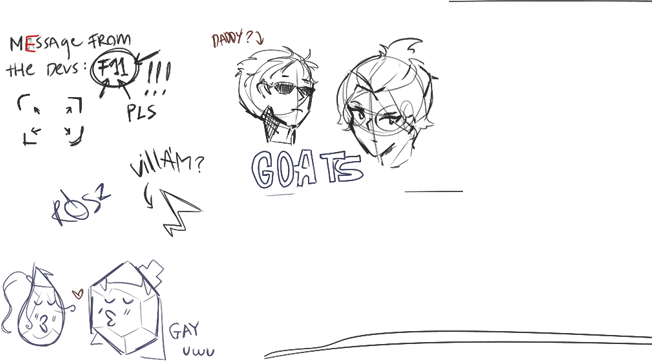 MEssage FROM
the Devs: F11 !!!
PLS
DADDY?
GOATS
villAM?
GAY
uwu